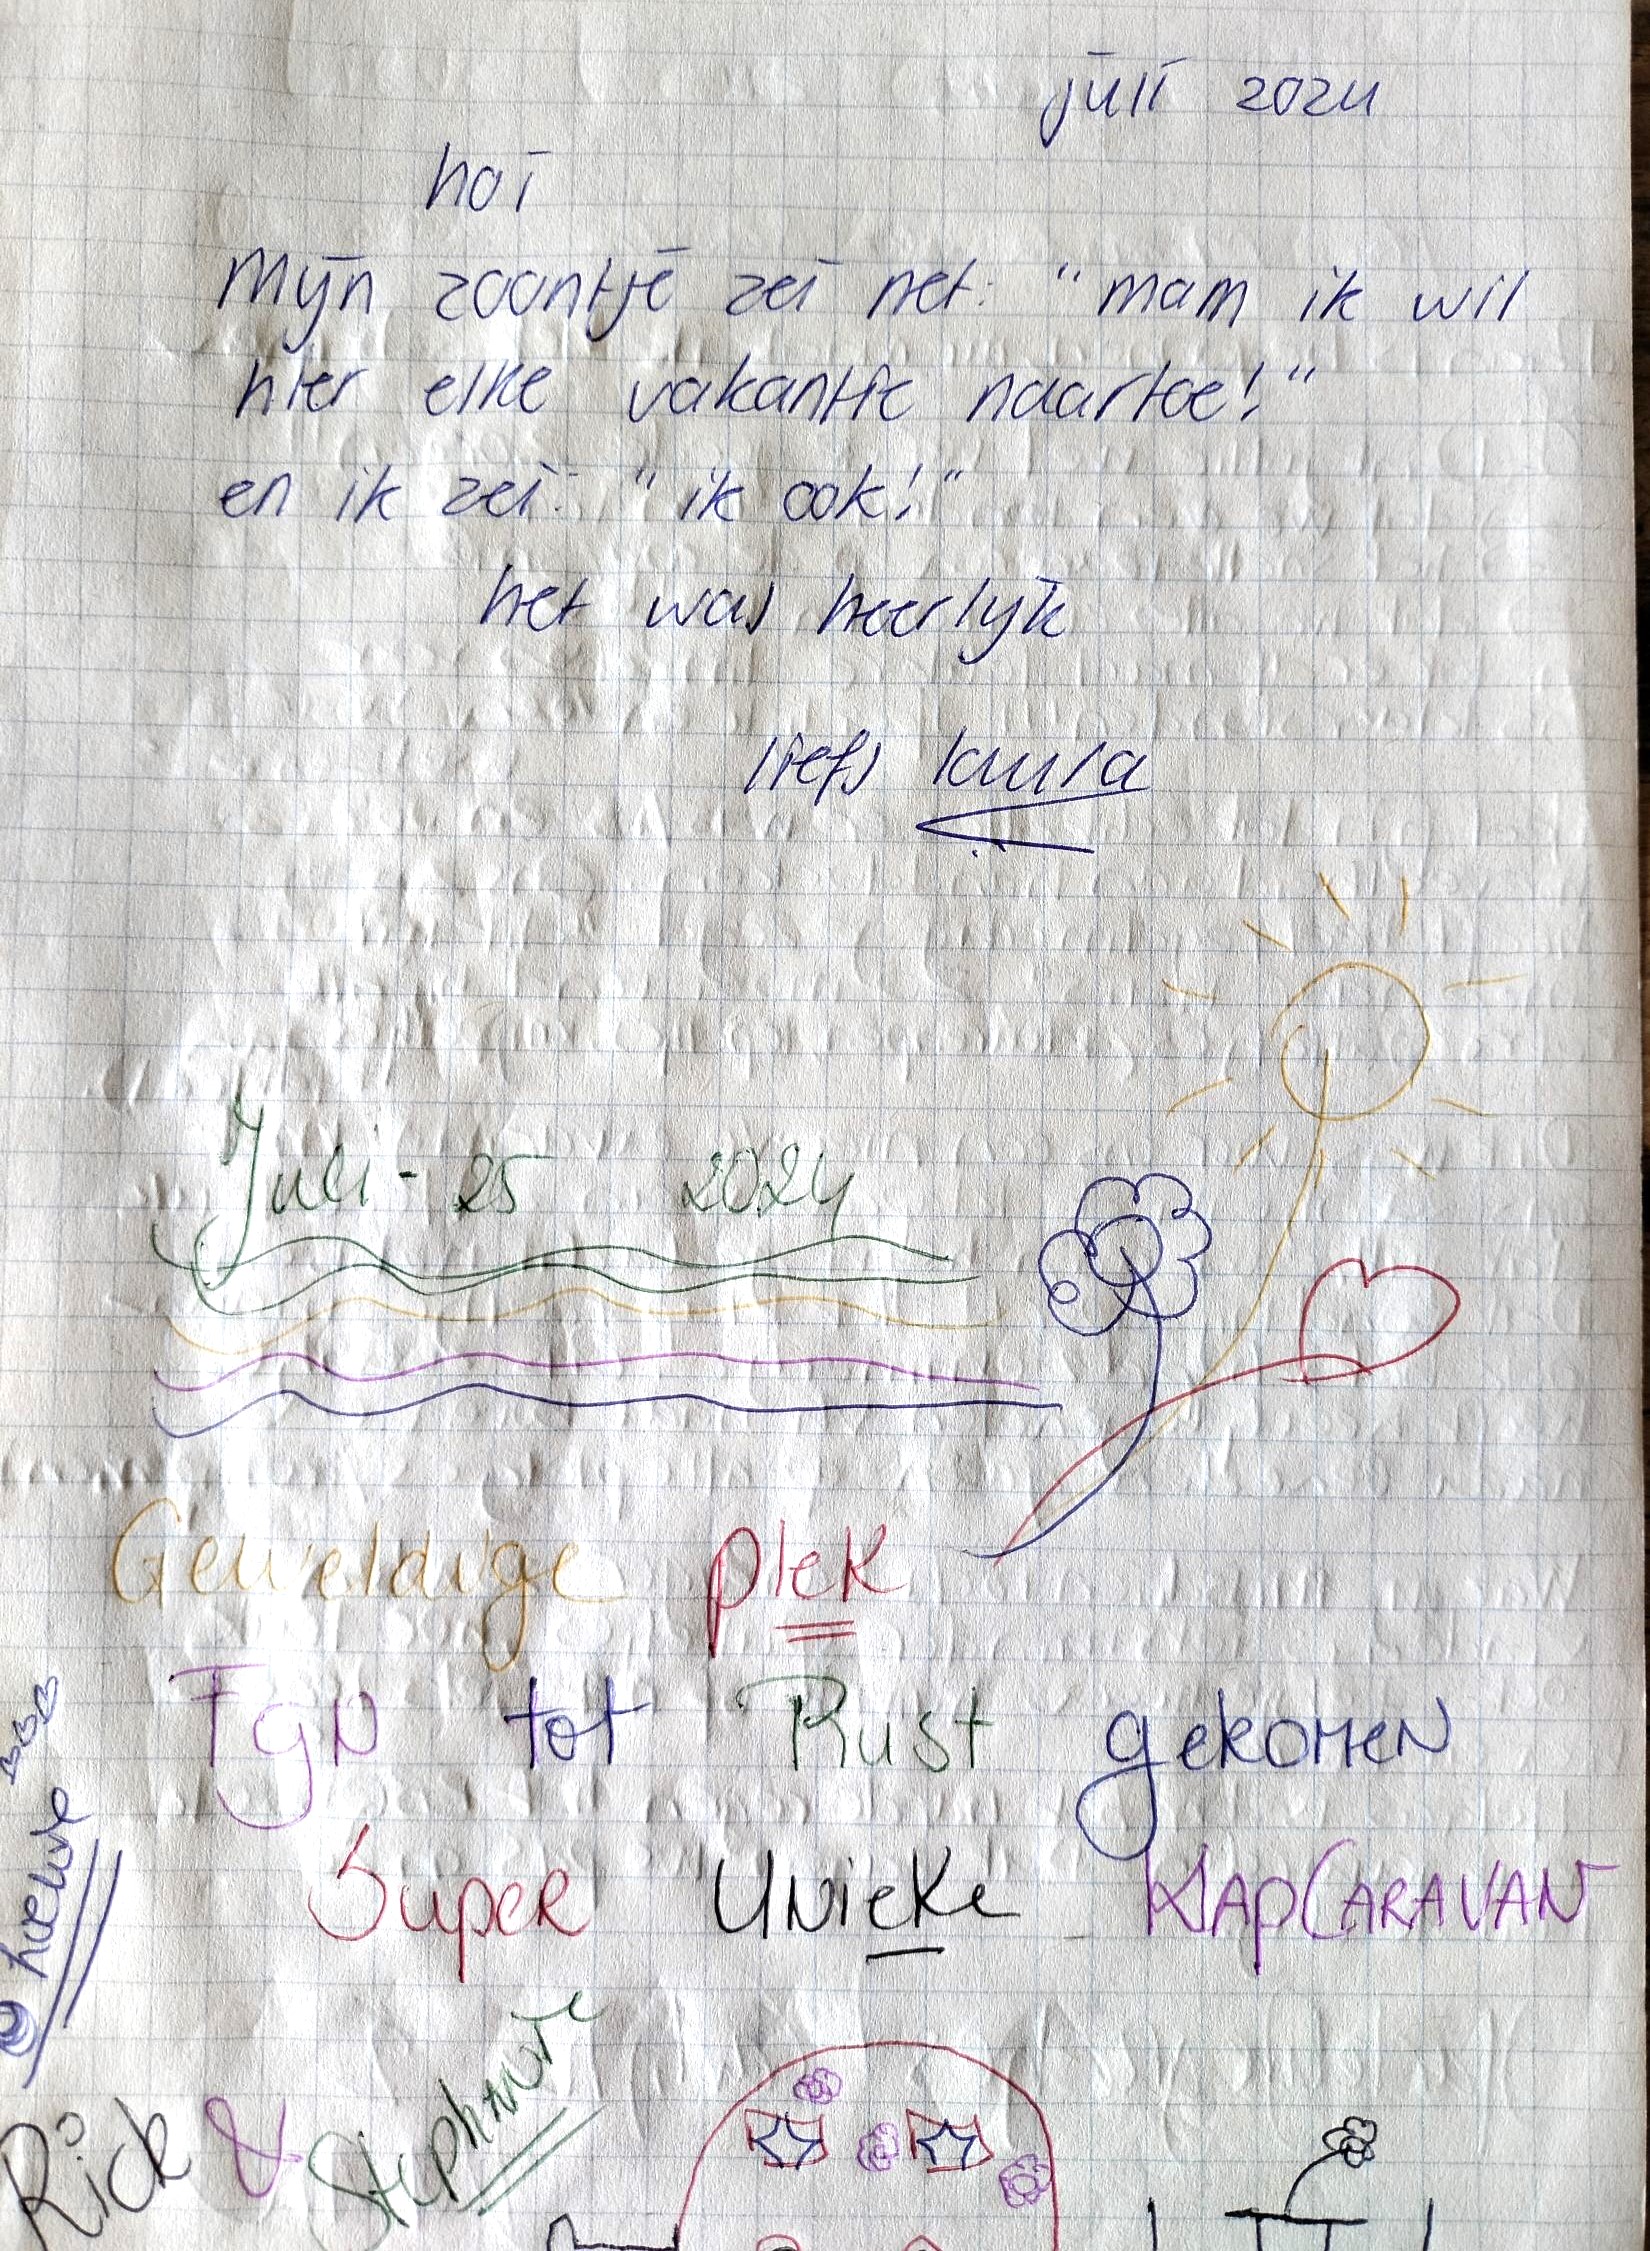 juli 2024
hoi
Mijn zoontje zei net: "mam ik wil
hier elke vakantie naartoe!"
en ik zei: "ik ook!"
het was heerlijk
liefs laura
Juli - 25 2024
Geweldige plek
Fijn tot Rust gekomen
Super Unieke KlapCaravan
Rick & Stephanie